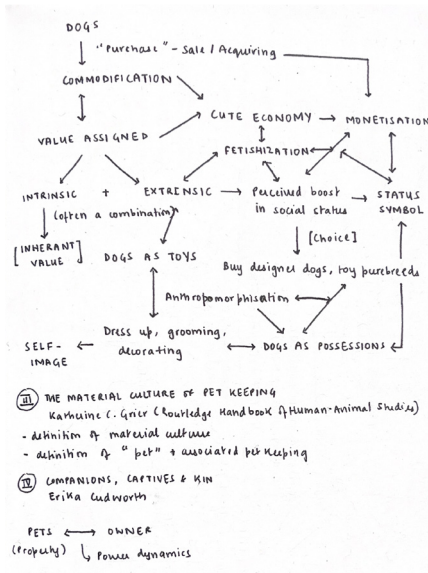 DOGS
"Purchase" - Sale / Acquiring
COMMODIFICATION
CUTE ECONOMY → MONETISATION
VALUE ASSIGNED
FETISHIZATION
INTRINSIC + EXTRINSIC → Perceived boost in social status → STATUS SYMBOL
(often a combination)
[INHERANT VALUE]
DOGS AS TOYS
[Choice]
Buy designer dogs, toy purebreeds
Anthropomorphisation
SELF-IMAGE ← Dress up, grooming, decorating ↔ DOGS AS POSSESSIONS
III THE MATERIAL CULTURE OF PET KEEPING
Katherine C. Grier (Routledge Handbook of Human-Animal Studies)
- definition of material culture
- definition of "pet" + associated pet keeping
IV COMPANIONS, CAPTIVES & KIN
Erika Cudworth
PETS ↔ OWNER
(Property) ↳ Power dynamics